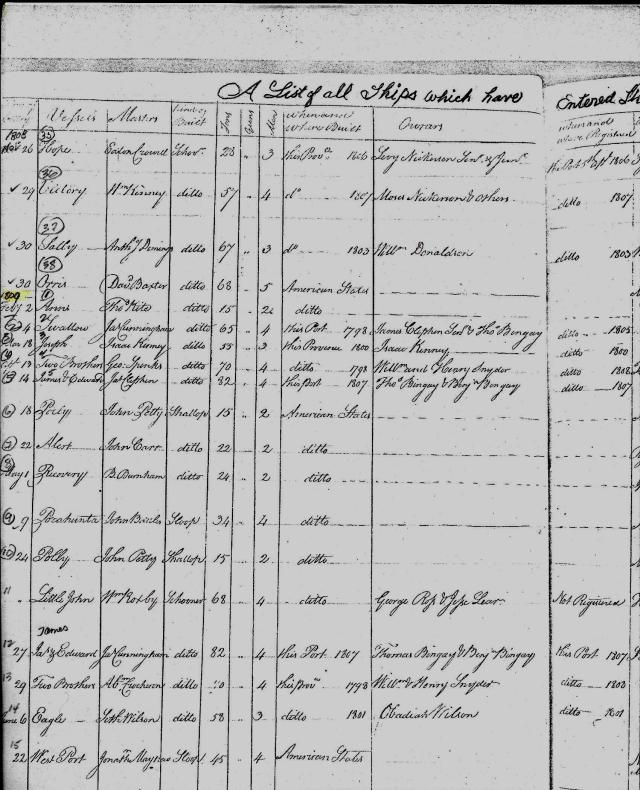 A List of all Ships which have Entered
Vessels Masters Kind of Built Tons Guns Men when and where Built Owners when and where Registered
1808 (35)
Nov 26 Hope Schor. 23 " 3 this Prov. 1806 Levy Nickerson Senr. & Junr. this Port 1806
(36)
29 Victory Wm Kinney ditto 57 " 4 do 1807 Moses Nickerson & others ditto 1807
(37)
30 Sally Anthy ditto 67 " 3 do 1803 Willm Donaldson ditto 1803
(38)
30 Orris Davd Baxter ditto 68 " 5 American States
1809
Feby 2 Thos ditto 15 " 2 ditto
4 Swallow Jas Cunningham ditto 65 " 4 this Port 1798 James Clephen Senr & Thos Bingay ditto 1808
18 Joseph Isaac Kinney ditto 53 " 3 this Province 1800 Isaac Kenney ditto 1800
17 Two Brothers Geo. Spinks ditto 70 " 4 ditto 1798 Willm and Henry Snyder ditto 1808
14 James & Edward ditto 82 " 4 this Port 1807 Thos Bingay & Benj Bingay ditto 1807
(6) 18 Polly John Petty Shallop 15 " 2 American States
(7) 22 Alert John Carr ditto 22 " 2 ditto
(8)
May 1 Recovery B. Burnham ditto 24 " 2 ditto
(9) 9 Pocahunta John Sloop 34 " 4 ditto
(10) 24 Polly John Petty Shallop 15 " 2 ditto
11 " Little John Wm Schooner 68 " 4 ditto George Ross & Jesse Lear Not Registered
James
12 27 Jas & Edward Jas Cunningham ditto 82 " 4 this Port 1807 Thomas Bingay & Benj Bingay this Port 1807
13 29 Two Brothers ditto 70 " 4 this Prov 1798 Willm & Henry Snyder ditto 1808
14
June 6 Eagle Seth Wilson ditto 53 " 3 ditto 1801 Obadiah Wilson ditto 1801
15
22 West Port Jonathn Sloop 45 " 4 American States